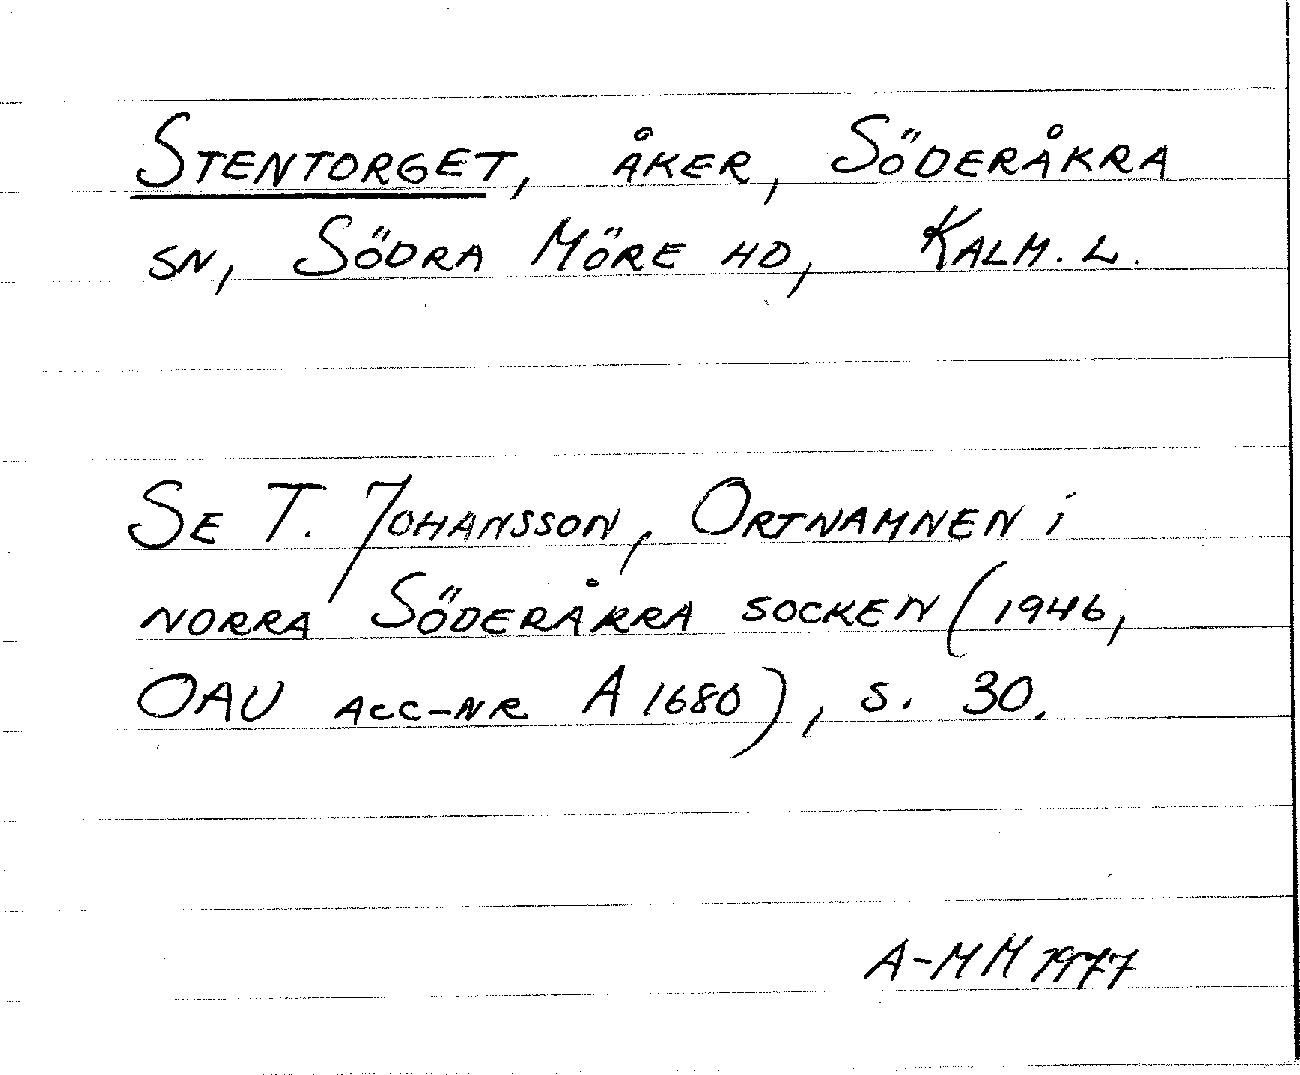 STENTORGET, ÅKER, SÖDERÅKRA
SN, SÖDRA MÖRE HD, KALM. L.
SE T. JOHANSSON, ORTNAMNEN i
NORRA SÖDERÅKRA SOCKEN (1946,
OAU ACC-NR A 1680), S. 30.
A-MM 1977